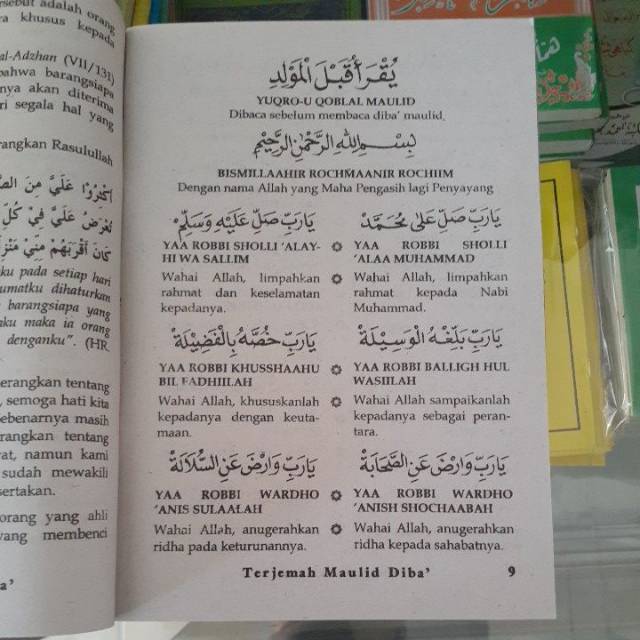 rsebut adalah orang
khusus kepada
al-Adzhan (VII/131)
bahwa barangsiapa
nya akan diterima
ri segala hal yang
rangkan Rasulullah
أَكْثِرُوا عَلَيَّ مِنَ
تُعْرَضُ عَلَيَّ فِيْ كُلِّ
كَانَ أَقْرَبَهُمْ مِنِّيْ
ku pada setiap hari
umatku dihaturkan
barangsiapa yang
ku maka ia orang
denganku". (HR.
erangkan tentang
, semoga hati kita
ebenarnya masih
rangkan tentang
rat, namun kami
sudah mewakili
sertakan.
orang yang ahli
yang membenci
a'
يُقْرَأُ قَبْلَ الْمَوْلِدِ
YUQRO-U QOBLAL MAULID
Dibaca sebelum membaca diba' maulid.
بِسْمِ اللهِ الرَّحْمٰنِ الرَّحِيْمِ
BISMILLAAHIR ROCHMAANIR ROCHIIM
Dengan nama Allah yang Maha Pengasih lagi Penyayang
يَارَبِّ صَلِّ عَلَى مُحَمَّدْ
YAA ROBBI SHOLLI
'ALAA MUHAMMAD
Wahai Allah, limpahkan
rahmat kepada Nabi
Muhammad.
يَارَبِّ صَلِّ عَلَيْهِ وَسَلِّمْ
YAA ROBBI SHOLLI 'ALAY-
HI WA SALLIM
Wahai Allah, limpahkan
rahmat dan keselamatan
kepadanya.
يَارَبِّ بَلِّغْهُ الْوَسِيْلَةْ
YAA ROBBI BALLIGH HUL
WASIILAH
Wahai Allah sampaikanlah
kepadanya sebagai peran-
tara.
يَارَبِّ خُصَّهُ بِالْفَضِيْلَةْ
YAA ROBBI KHUSSHAAHU
BIL FADHIILAH
Wahai Allah, khususkanlah
kepadanya dengan keuta-
maan.
يَارَبِّ وَارْضَ عَنِ الصَّحَابَةْ
YAA ROBBI WARDHO
'ANISH SHOCHAABAH
Wahai Allah, anugerahkan
ridha kepada sahabatnya.
يَارَبِّ وَارْضَ عَنِ السُّلَالَةْ
YAA ROBBI WARDHO
'ANIS SULAALAH
Wahai Allah, anugerahkan
ridha pada keturunannya.
Terjemah Maulid Diba' 9